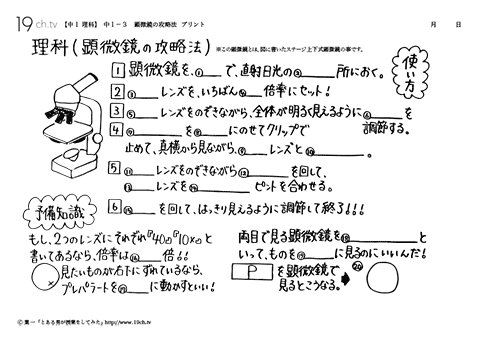 19ch.tv 【中1 理科】 中1-3 顕微鏡の攻略法 プリント 月 日
理科(顕微鏡の攻略法) ※この顕微鏡とは、図に書いたステージ上下式顕微鏡の事です。
使い方
1 顕微鏡を、①____で、直射日光の②____所におく。
2 ③____レンズを、いちばん④____倍率にセット!
3 ⑤____レンズをのぞきながら、全体が明るく見えるように⑥____を調節する。
4 ⑦____を⑧____にのせてクリップで
止めて、真横から見ながら、⑨____レンズと⑩____。
5 ⑪____レンズをのぞきながら⑫____を回して、
⑬____レンズを⑭____ ピントを合わせる。
6 ⑮____を回して、はっきり見えるように調節して終了!!!
予備知識
もし、2つのレンズにそれぞれ『40』『10×』と
書いてあるなら、倍率は⑯____倍!!
見たいものが右下にずれているなら、
プレパラートを⑰____に動かすといい!
両目で見る顕微鏡を⑱____と
いって、ものを⑲____に見るのにいいんだ!
P を顕微鏡で
見るとこうなる。 ⑳
© 葉一「とある男が授業をしてみた」http://www.19ch.tv